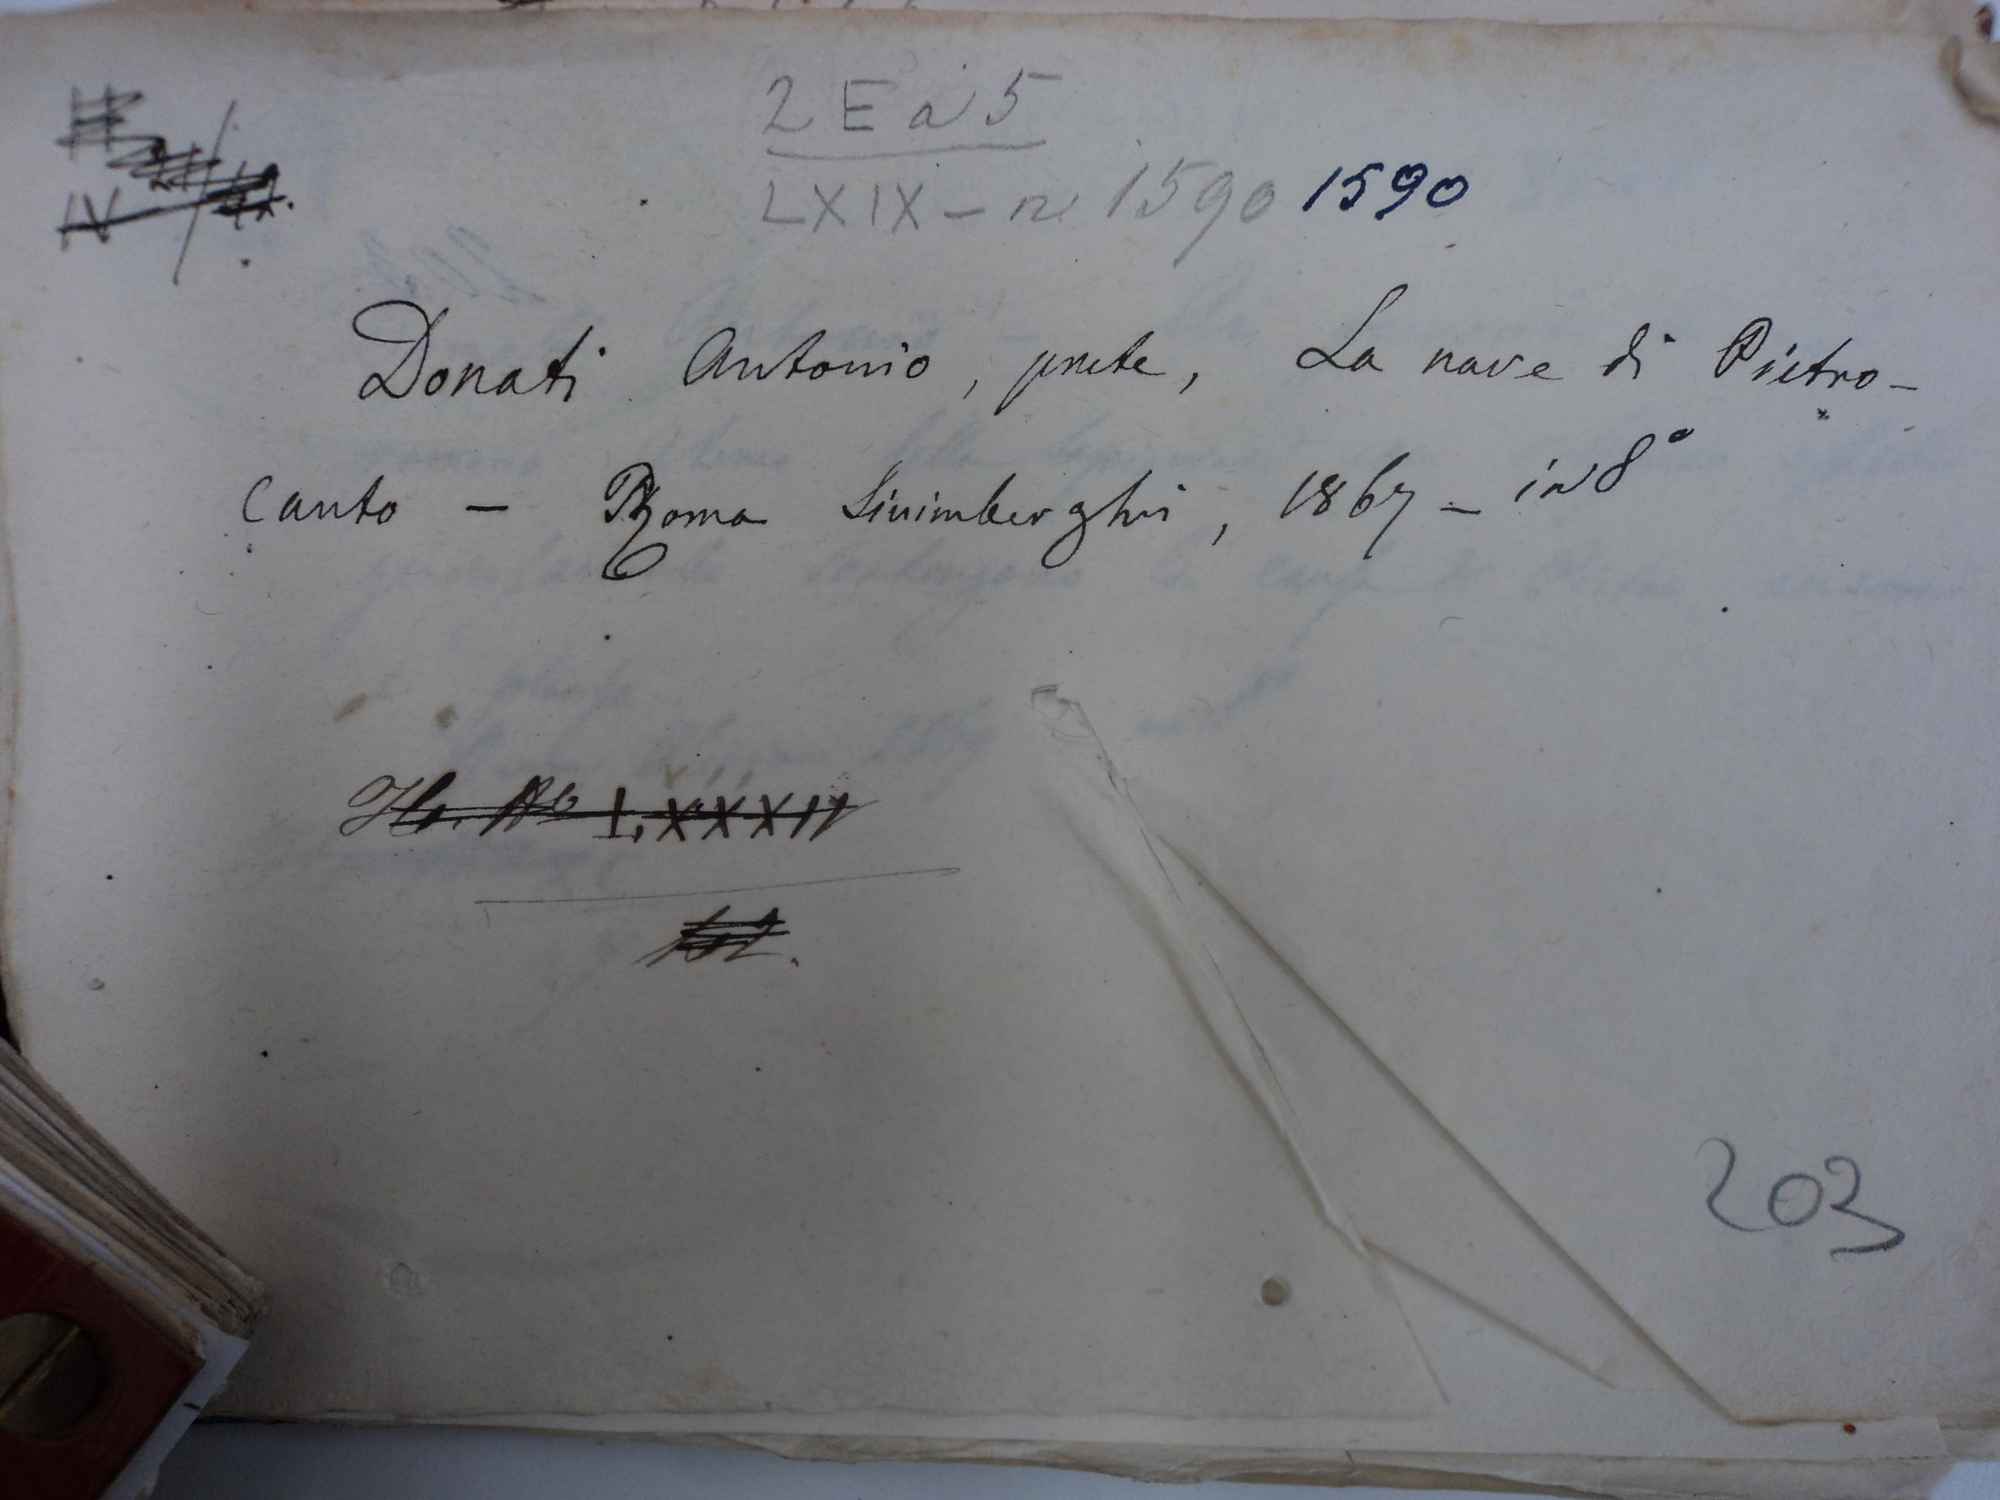 2 E a 5
LXIX - n 1590 1590
IV
Donati Antonio, prete, La nave di Pietro -
canto - Roma Sinimberghi, 1867 - in 8°
LXXXIV
203